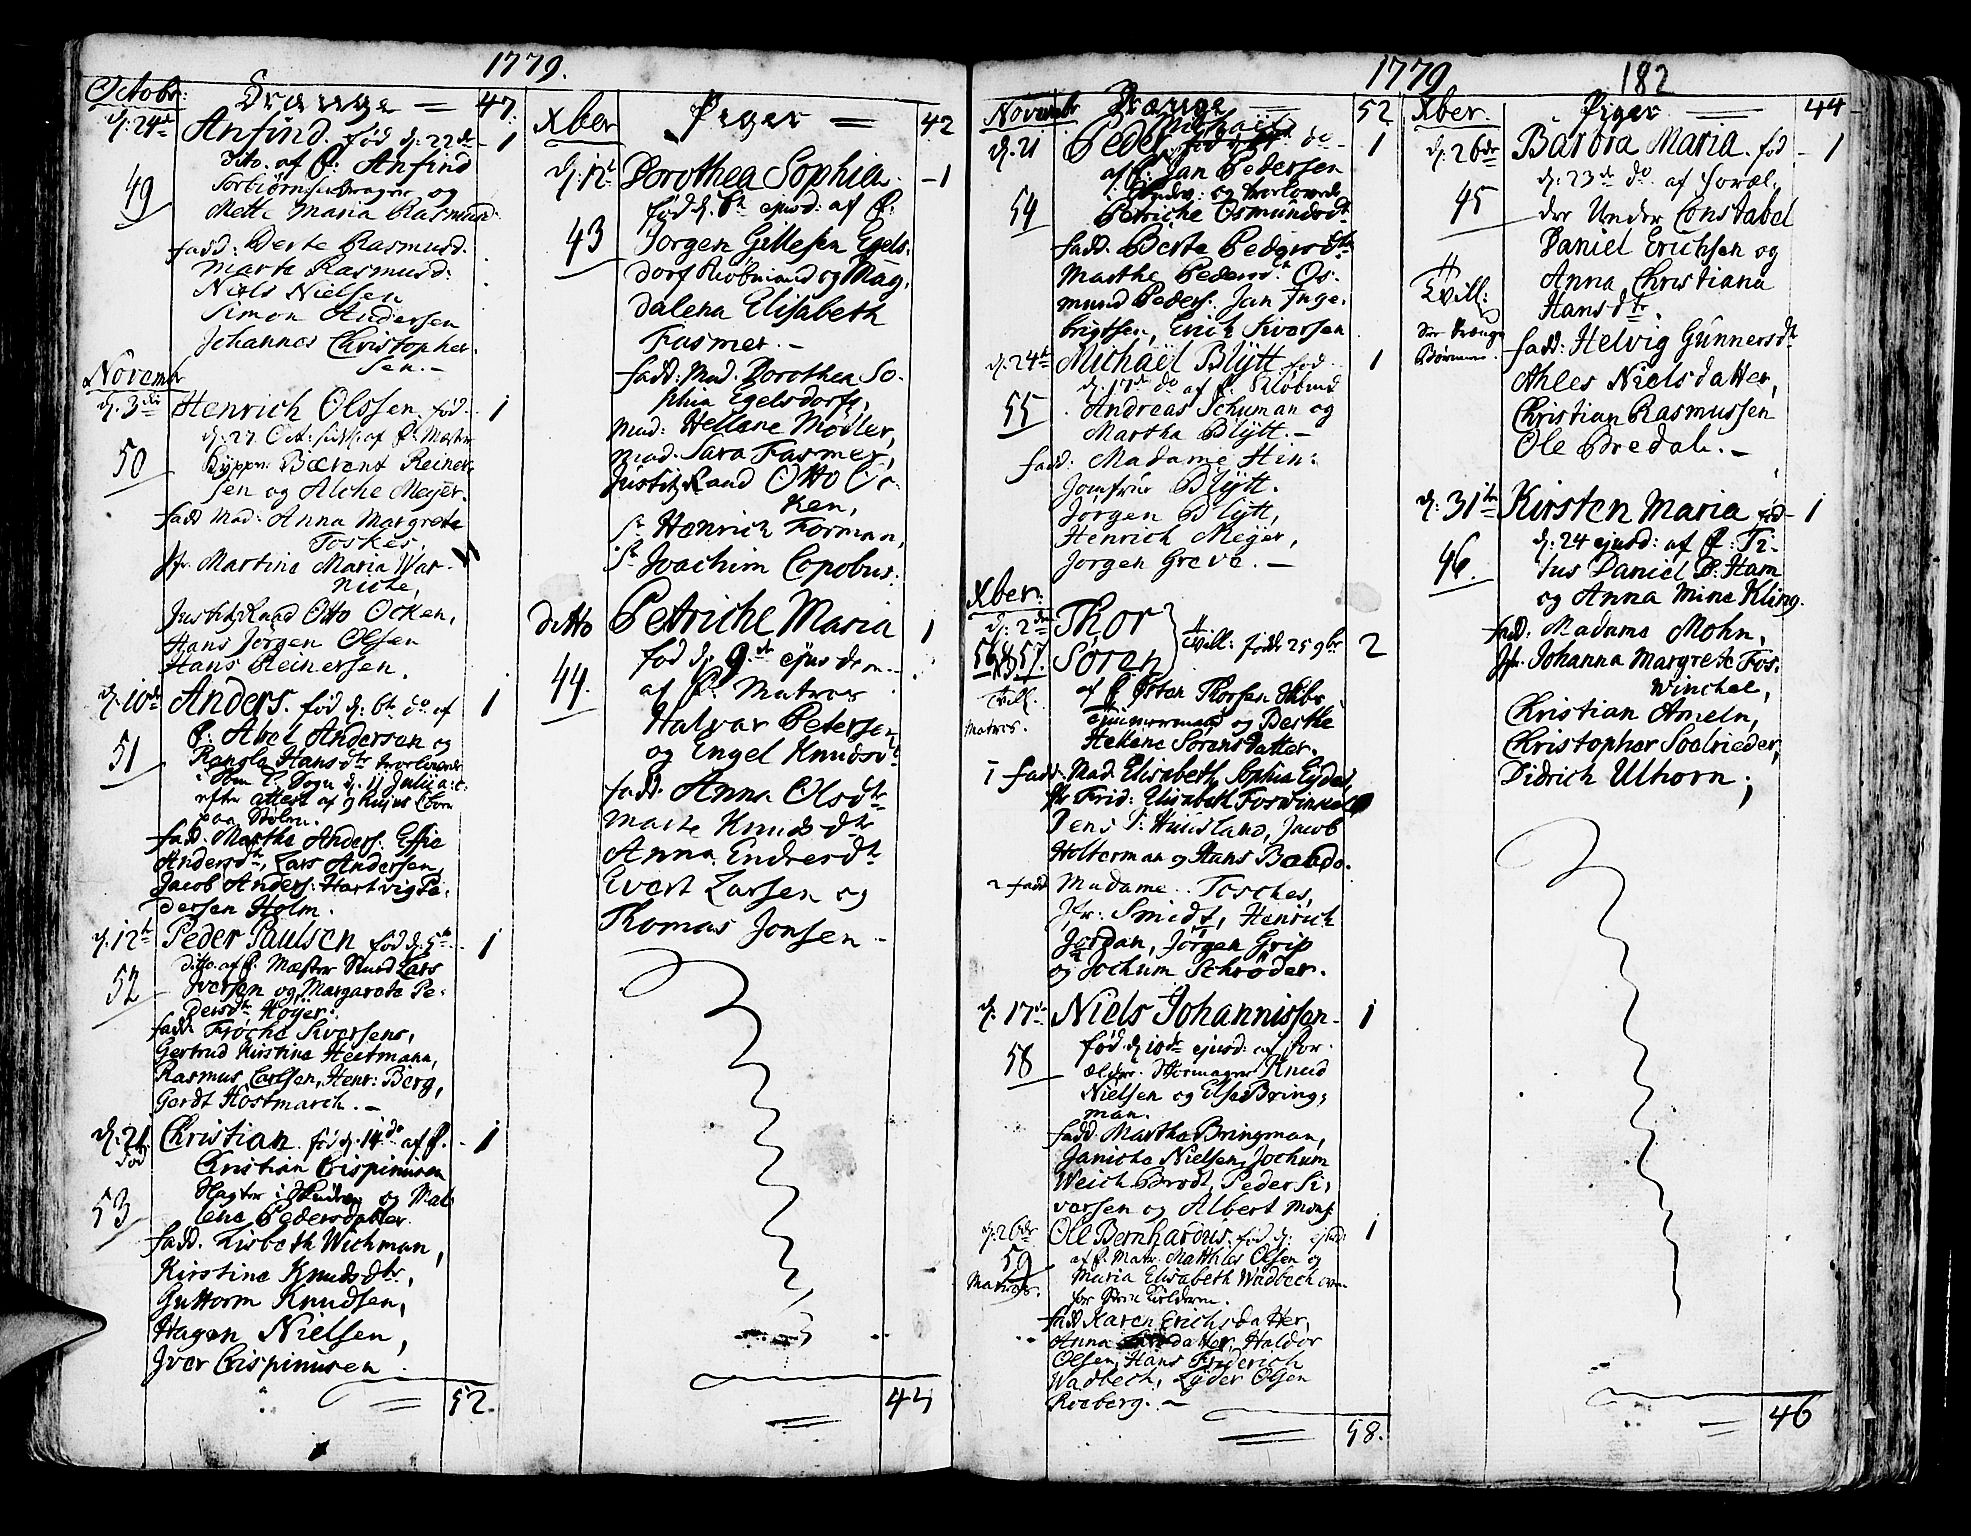 1779.
Octobr:
Drænge = 47.
d: 24de Anfind. fød d: 22de - 1
dito. af F: Anfind
49 Torbiørnsen Dragner og
Mette Maria Rasmusd:
fadd: Berte Rasmusd.
Marte Rasmusd:
Niels Nielsen
Simon Andersen
Johannes Christopher-
sen. -
Novembr
d. 3die Henrich Olssen, fød. 1
d. 27 Oct: af F: Mester
50 Bærent Reiner-
sen og Alche Meyer.
fadd Mad: Anna Margrete
Foskes,
Jfr. Martine Maria War-
niche,
Justitz Raad Otto Ocken,
Hans Jørgen Olsen
Hans Reinersen.
d: 10de Anders. fød d: 6te do af 1
F: Abel Andersen og
51 Rangla Hansdtr trorlovede
d. 11 Julii a: c:
efter attest af
paa Stolen.
fadd: Marthe Anders: Effie
Andersdtr, Lars Andersen,
Jacob Anders: Hartvig Pe-
dersen Holm.
d. 12te Peder Paulsen fød d: 5te - 1
ditto. af F: Mæster Knud Lars
52 Iversen og Margarete Pe-
dersdtr Høyer:
fadd: Frøche Siversens,
Gertrud Kirstine Heitmann,
Rasmus Carlsen, Henr: Berg,
Gerdt Hostmarch. -
d: 21 Christian fød d: 14de af F. - 1
død
Christian Crispinusen
Slagter i og Mal
53 lene Pedersdatter.
fadd. Lisbeth Wichman,
Kirstine Knudsdtr,
Guttorm Knudsen,
Hagen Nielsen,
Iver Crispinusen.
52.
Xber Piger = 42
d: 12t Dorothea Sophia. - 1
fød d. 6te ejusd: af F:
43 Jørgen Gillesen Egels-
dorf Kiøbmand og Mag-
dalena Elisabeth
Fasmer. -
fadd: Mad. Dorothea So-
phia Egelsdorfs,
Mad: Hellene Møller,
Mad. Sara Fasmer,
Justitz Raad Otto Oc-
ken,
Sr Henrich Forman,
Sr Joachim Copobus:
ditto Petriche Maria 1
fød d. 9de ejusdem
af F: Matros
44. Halvar Petersen
og Engel Knudsdt
fadd. Anna Olsdtr
Marte Knudsdtr
Anna Endresdtr
Evert Larsen og
Thomas Jonsen -
44
1779 182
Novembr Drænge 52
d. 21 Peder Michael do - 1
af F: Jan Pedersen
og trorlovede
54 Petriche Osmundsdtr
fadd: Berte Pedersdtr
Marthe Pedersdtr Os-
mund Peders: Jan Inge-
brigtsen, Erich Siversen
d: 24t Michaël Blÿtt fød 1
d. 17de do af F. Kiøbmd
55 Andreas Schuman og
Martha Blÿtt. -
fadd: Madame Hen:
Jomfrue Blÿtt.
Jørgen Blÿtt,
Henrich Meyer,
Jørgen Greve. -
Xber:
d: 2den Thor
56 & 57. Søren Tvill: fødde 25 9br 2
Tvill. af F Østen Thorsen Skibs
Matros. Tømmermand og Berthe
Hellene Sørensdatter.
1 fadd: Mad. Elisabeth Sophia Eyde,
Jfr Frid: Elisabeth Foswinkel
Jens P: Huusland, Jacob
Holterman og Hans Baado.
2 fadd Madame Tosches,
Jfr: Smidt, Henrich
Jordan, Jørgen Grip
og Jochum Schrøder.
d. 17de Niels Johannissen - 1
fød d. 10de ejusd: af For-
58 ældre. Skomager Knud
Nielsen og Else Bring-
man.
fadd: Marthe Bringman,
Janiche Nielsen, Jochum
Weich Brodt, Peder Si-
versen og Albert Mons.
d: 26de Ole Bernhardus. fød d: ejusd: 1
59 af F. Matr. Matthies Olsen og
Matros. Maria Elisabeth Wadbech oven
for
fadd Karen Erichsdatter,
Anna datter, Haldor
Olsen, Hans Friderich
Wadbech, Lyder Olsen
Roeberg. -
58.
Xber. Piger 44
d: 26de Barbra Maria. fød - 1
d: 23de do af foræl-
45 dre Under Constabel
Daniel Erichsen og
Tvill: Anna Christiana
Hansdtr.
fadd: Helvig Gunnersdt
Ahles Nielsdatter,
Christian Rasmussen
Ole Bredal. -
d. 31te Kirsten Maria fød - 1
d. 24 ejusd: af F: Ti-
46. tus Daniel P: Ham
og Anna Mine Kling.
fadd: Madame Mohn,
Jfr. Johanna Margrete Fos-
winchel,
Christian Ameln,
Christopher Soelrieder,
Didrich Ulhorn;
46